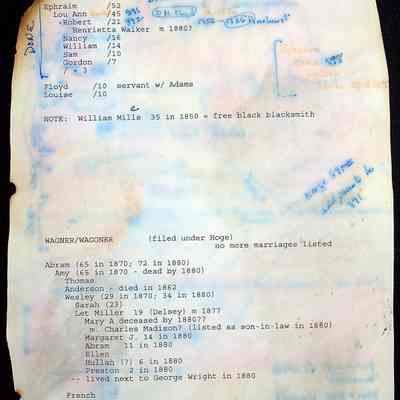 Ephraim /52
Lou Ann /45 591
Robert /21 592
Henrietta Walker m 1880?
Nancy /16
William /14
Sam /10
Gordon /7
/ + 3
DONE
Floyd /10 servant w/ Adams
Louise /10
e
NOTE: William Mills 35 in 1850 = free black blacksmith
WAGNER/WAGGONER (filed under Hoge)
no more marriages listed
Abram (65 in 1870; 72 in 1880)
Amy (65 in 1870 - dead by 1880)
Thomas
Anderson - died in 1862
Wesley (29 in 1870; 34 in 1880)
Sarah (23)
Let Miller 19 (Delsey) m 1877
Mary A deceased by 1880??
m. Charles Madison? (listed as son-in-law in 1880)
Margaret J. 14 in 1880
Abram 11 in 1880
Ellen
Hullah (?) 6 in 1880
Preston 2 in 1880
-- lived next to George Wright in 1880
French